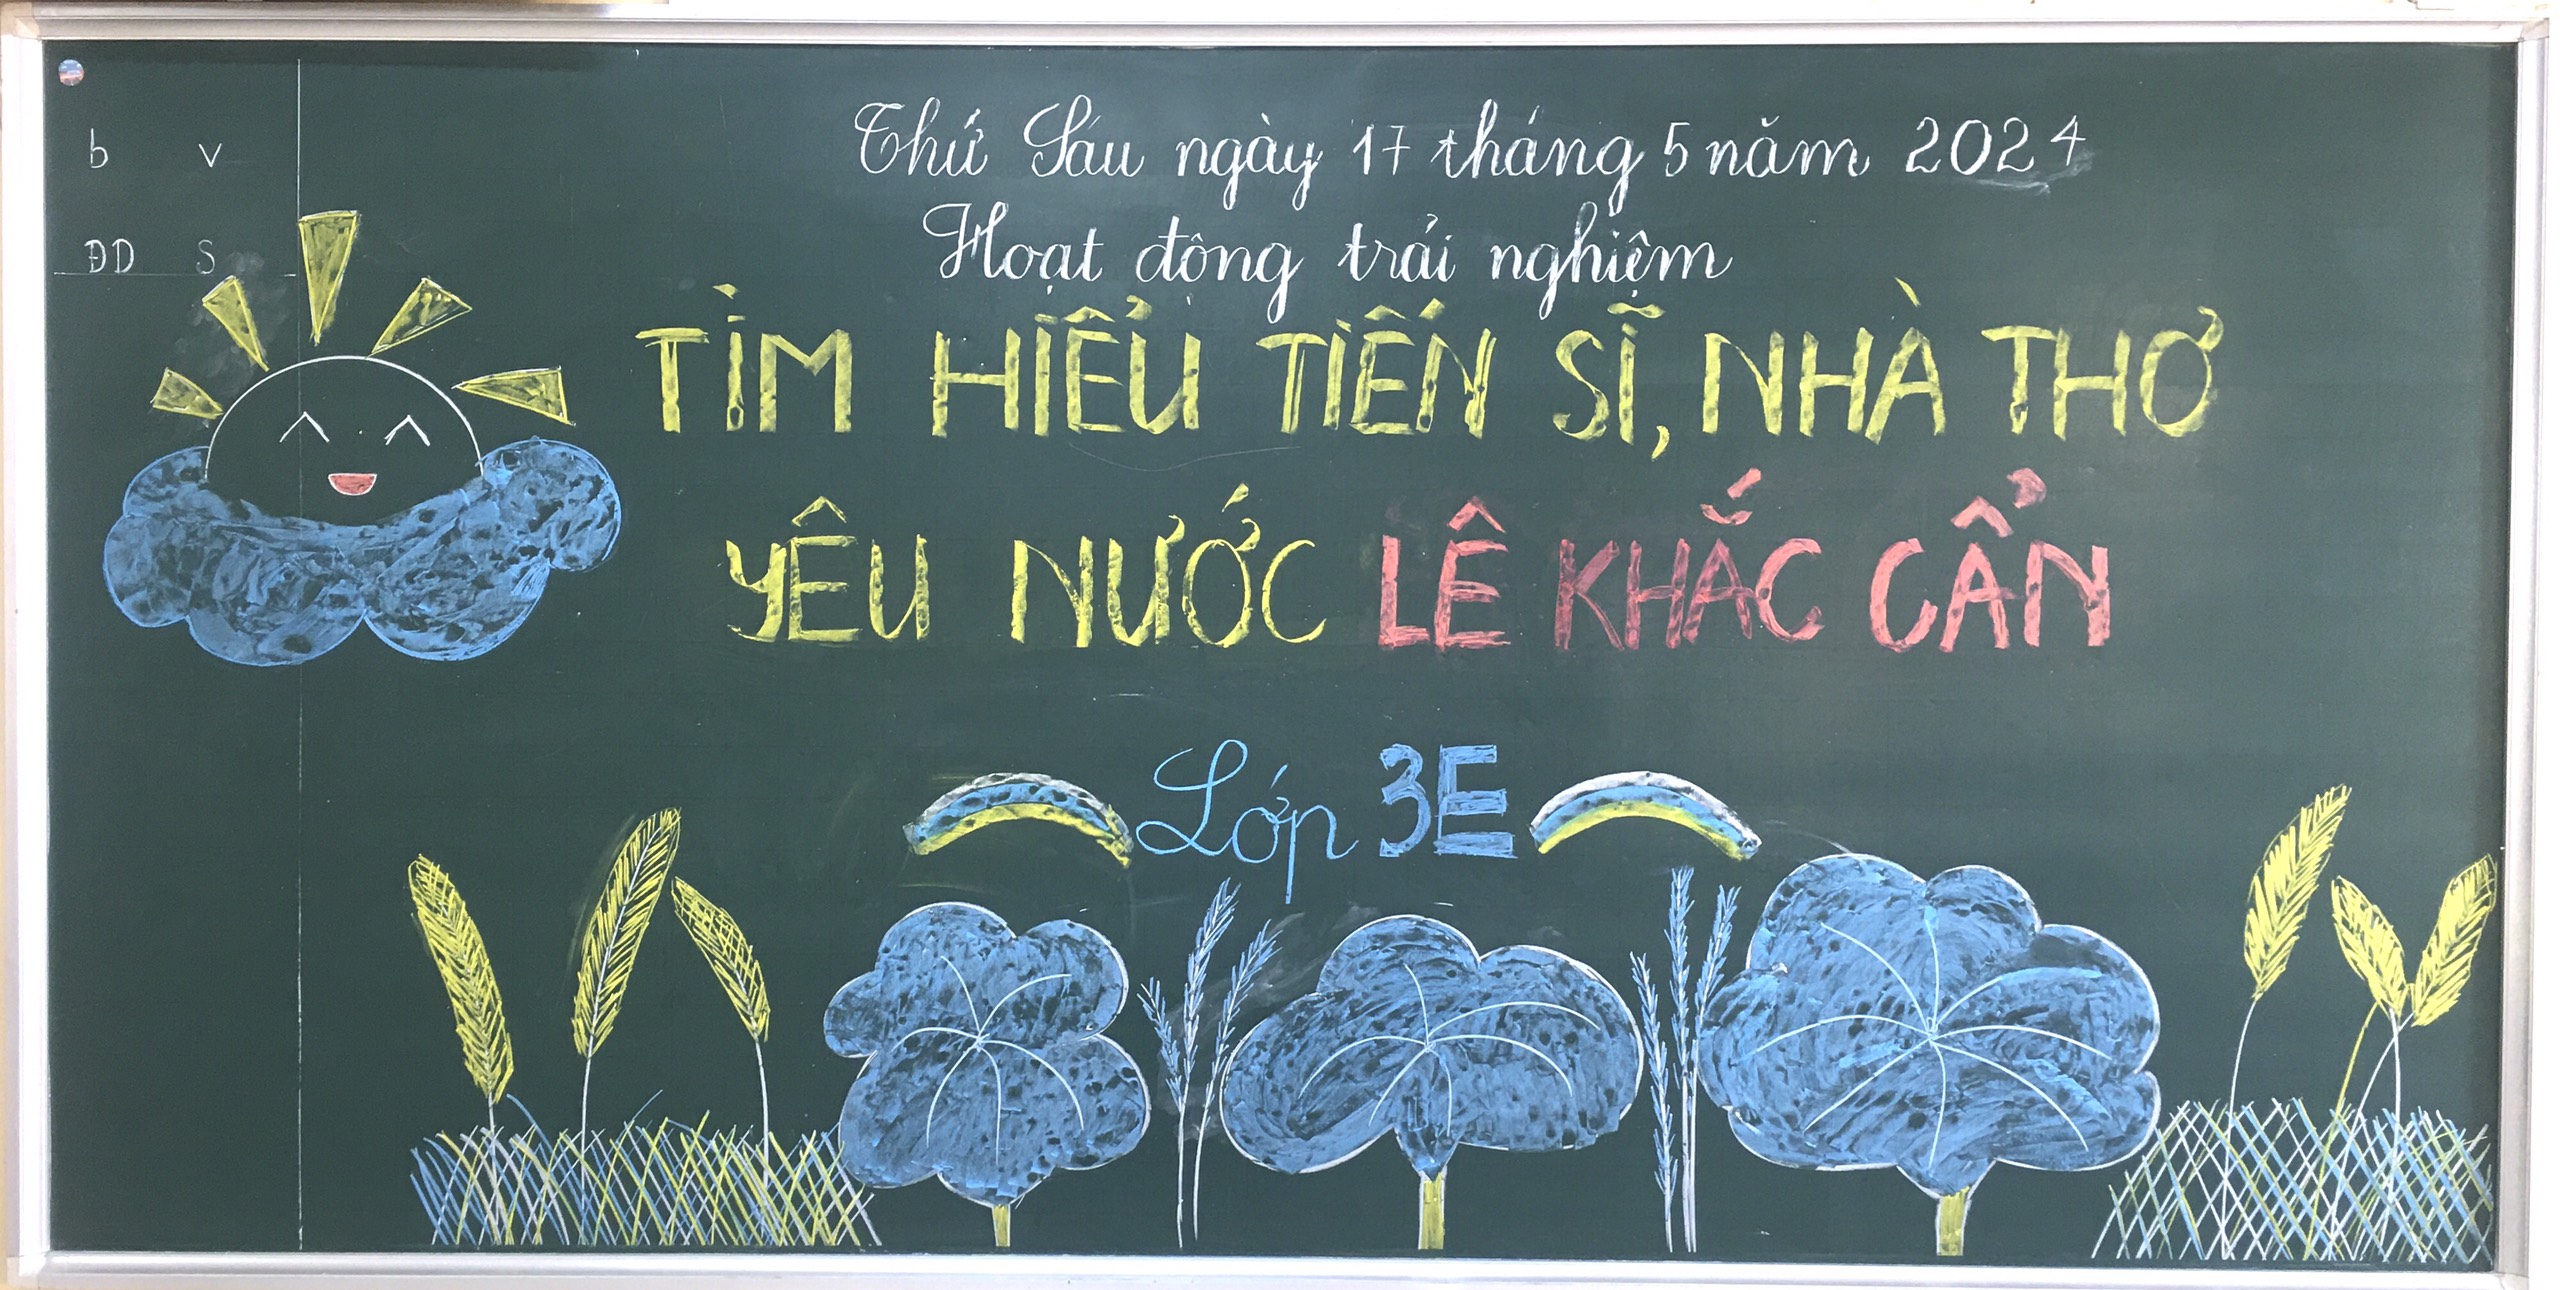 b v
ĐD S
Thứ Sáu ngày 17 tháng 5 năm 2024
Hoạt động trải nghiệm
TÌM HIỂU TIẾN SĨ, NHÀ THƠ
YÊU NƯỚC LÊ KHẮC CẨN
Lớp 3E